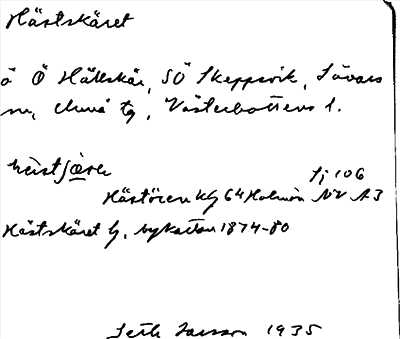 Hästskäret
ö Ö Hällskär, SÖ Skeppsvik, Sävars
sn, Umeå tg, Västerbottens l.
Sj 106
Hästören kfg 64 Holmön NV A3
Hästskäret fg. sykartan 1874-80
Seth Jansson 1935